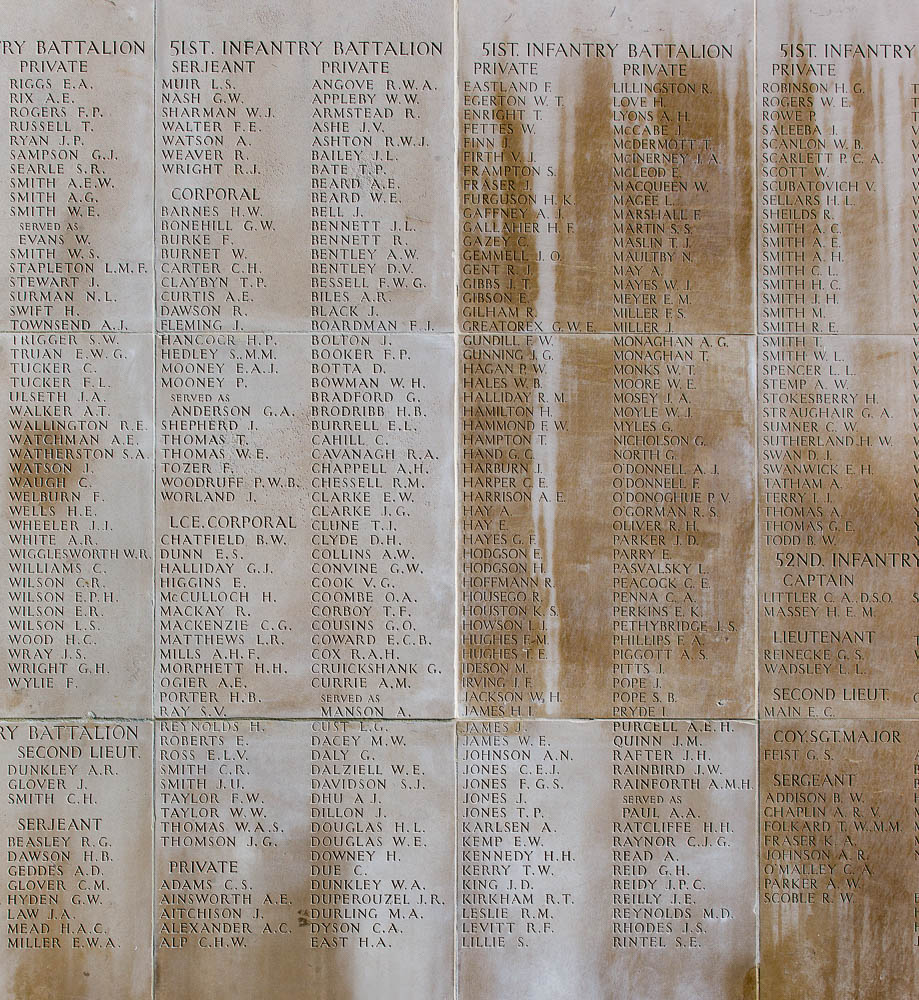 RY BATTALION
PRIVATE
RIGGS E.A.
RIX A.E.
ROGERS F.P.
RUSSELL T.
RYAN J.P.
SAMPSON G.J.
SEARLE S.R.
SMITH A.E.W.
SMITH A.G.
SMITH W.E.
SERVED AS
EVANS W.
SMITH W.S.
STAPLETON L.M.F.
STEWART J.
SURMAN N.L.
SWIFT H.
TOWNSEND A.J.
TRIGGER S.W.
TRUAN E.W.G.
TUCKER C.
TUCKER F.L.
ULSETH J.A.
WALKER A.T.
WALLINGTON R.E.
WATCHMAN A.E.
WATHERSTON S.A.
WATSON J.
WAUGH C.
WELBURN F.
WELLS H.E.
WHEELER J.J.
WHITE A.R.
WIGGLESWORTH W.R.
WILLIAMS C.
WILSON C.R.
WILSON E.P.H.
WILSON E.R.
WILSON L.S.
WOOD H.C.
WRAY J.S.
WRIGHT G.H.
WYLIE F.
RY BATTALION
SECOND LIEUT.
DUNKLEY A.R.
GLOVER J.
SMITH C.H.
SERJEANT
BEASLEY R.G.
DAWSON H.B.
GEDDES A.D.
GLOVER C.M.
HYDEN G.W.
LAW J.A.
MEAD H.A.C.
MILLER E.W.A.
51ST. INFANTRY BATTALION
SERJEANT
MUIR L.S.
NASH G.W.
SHARMAN W.J.
WALTER F.E.
WATSON A.
WEAVER R.
WRIGHT R.J.
CORPORAL
BARNES H.W.
BONEHILL G.W.
BURKE F.
BURNET W.
CARTER C.H.
CLAYBYN T.P.
CURTIS A.E.
DAWSON R.
FLEMING J.
HANCOCK H.P.
HEDLEY S.M.M.
MOONEY E.A.J.
MOONEY P.
SERVED AS
ANDERSON G.A.
SHEPHERD J.
THOMAS T.
THOMAS W.E.
TOZER F.
WOODRUFF P.W.B.
WORLAND J.
LCE.CORPORAL
CHATFIELD B.W.
DUNN E.S.
HALLIDAY G.J.
HIGGINS E.
McCULLOCH H.
MACKAY R.
MACKENZIE C.G.
MATTHEWS L.R.
MILLS A.H.F.
MORPHETT H.H.
OGIER A.E.
PORTER H.B.
RAY S.V.
REYNOLDS H.
ROBERTS E.
ROSS E.L.V.
SMITH C.R.
SMITH J.U.
TAYLOR F.W.
TAYLOR W.W.
THOMAS W.A.S.
THOMSON J.G.
PRIVATE
ADAMS C.S.
AINSWORTH A.E.
AITCHISON J.
ALEXANDER A.C.
ALP C.H.W.
PRIVATE
ANGOVE R.W.A.
APPLEBY W.W.
ARMSTEAD R.
ASHE J.V.
ASHTON R.W.J.
BAILEY J.L.
BATE T.P.
BEARD A.E.
BEARD W.E.
BELL J.
BENNETT J.L.
BENNETT R.
BENTLEY A.W.
BENTLEY D.V.
BESSELL F.W.G.
BILES A.R.
BLACK J.
BOARDMAN F.J.
BOLTON J.
BOOKER F.P.
BOTTA D.
BOWMAN W.H.
BRADFORD G.
BRODRIBB H.B.
BURRELL E.L.
CAHILL C.
CAVANAGH R.A.
CHAPPELL A.H.
CHESSELL R.M.
CLARKE E.W.
CLARKE J.G.
CLUNE T.J.
CLYDE D.H.
COLLINS A.W.
CONVINE G.W.
COOK V.G.
COOMBE O.A.
CORBOY T.F.
COUSINS G.O.
COWARD E.C.B.
COX R.A.H.
CRUICKSHANK G.
CURRIE A.M.
SERVED AS
MANSON A.
CUST L.G.
DACEY M.W.
DALY G.
DALZIELL W.E.
DAVIDSON S.J.
DHU A.J.
DILLON J.
DOUGLAS H.L.
DOUGLAS W.E.
DOWNEY H.
DUE C.
DUNKLEY W.A.
DUPEROUZEL J.R.
DURLING M.A.
DYSON C.A.
EAST H.A.
51ST. INFANTRY BATTALION
PRIVATE
EASTLAND F.
EGERTON W.T.
ENRIGHT T.
FETTES W.
FINN J.
FIRTH V.J.
FRAMPTON S.
FRASER J.
FURGUSON H.K.
GAFFNEY A.J.
GALLAHER H.F.
GAZEY C.
GEMMELL J.O.
GENT R.J.
GIBBS J.T.
GIBSON E.
GILHAM R.
GREATOREX G.W.E.
GUNDILL F.W.
GUNNING J.G.
HAGAN P.W.
HALES W.B.
HALLIDAY R.M.
HAMILTON H.
HAMMOND F.W.
HAMPTON T.
HAND G.C.
HARBURN J.
HARPER C.E.
HARRISON A.E.
HAY A.
HAY E.
HAYES G.F.
HODGSON E.
HODGSON H.
HOFFMANN R.
HOUSEGO R.
HOUSTON K.S.
HOWSON L.J.
HUGHES F.M.
HUGHES T.E.
IDESON M.
IRVING J.F.
JACKSON W.H.
JAMES H.J.
JAMES J.
JAMES W.E.
JOHNSON A.N.
JONES C.E.J.
JONES F.G.S.
JONES J.
JONES T.P.
KARLSEN A.
KEMP E.W.
KENNEDY H.H.
KERRY T.W.
KING J.D.
KIRKHAM R.T.
LESLIE R.M.
LEVITT R.F.
LILLIE S.
PRIVATE
LILLINGTON R.
LOVE H.
LYONS A.H.
McCABE J.
McDERMOTT T.
McINERNEY J.A.
McLEOD E.
MACQUEEN W.
MAGEE L.
MARSHALL F.
MARTIN S.S.
MASLIN T.J.
MAULTBY N.
MAY A.
MAYES W.J.
MEYER E.M.
MILLER F.S.
MILLER J.
MONAGHAN A.G.
MONAGHAN T.
MONKS W.T.
MOORE W.E.
MOSEY J.A.
MOYLE W.J.
MYLES G.
NICHOLSON G.
NORTH G.
O'DONNELL A.J.
O'DONNELL F.
O'DONOGHUE P.V.
O'GORMAN R.S.
OLIVER R.H.
PARKER J.D.
PARRY E.
PASVALSKY L.
PEACOCK C.E.
PENNA C.A.
PERKINS E.K.
PETHYBRIDGE J.S.
PHILLIPS F.A.
PIGGOTT A.S.
PITTS J.
POPE J.
POPE S.B.
PRYDE J.
PURCELL A.E.H.
QUINN J.M.
RAFTER J.H.
RAINBIRD J.W.
RAINFORTH A.M.H.
SERVED AS
PAUL A.A.
RATCLIFFE H.H.
RAYNOR C.J.G.
READ A.
REID G.H.
REIDY J.P.C.
REILLY J.E.
REYNOLDS M.D.
RHODES J.S.
RINTEL S.E.
51ST. INFANTRY
PRIVATE
ROBINSON H.G.
ROGERS W.E.
ROWE P.
SALEEBA J.
SCANLON W.B.
SCARLETT P.C.A.
SCOTT W.
SCUBATOVICH V.
SELLARS H.L.
SHEILDS R.
SMITH A.C.
SMITH A.E.
SMITH A.H.
SMITH C.L.
SMITH H.C.
SMITH J.H.
SMITH M.
SMITH R.E.
SMITH T.
SMITH W.L.
SPENCER L.L.
STEMP A.W.
STOKESBERRY H.
STRAUGHAIR G.A.
SUMNER C.W.
SUTHERLAND H.W.
SWAN D.J.
SWANWICK E.H.
TATHAM A.
TERRY J.J.
THOMAS A.
THOMAS G.E.
TODD B.W.
52ND. INFANTRY
CAPTAIN
LITTLER C.A. D.S.O.
MASSEY H.E.M.
LIEUTENANT
REINECKE G.S.
WADSLEY L.L.
SECOND LIEUT.
MAIN E.C.
COY.SGT.MAJOR
FEIST G.S.
SERGEANT
ADDISON B.W.
CHAPLIN A.R.V.
FOLKARD T.W. M.M.
FRASER K.A.
JOHNSON A.R.
O'MALLEY C.A.
PARKER A.W.
SCOBLE R.W.